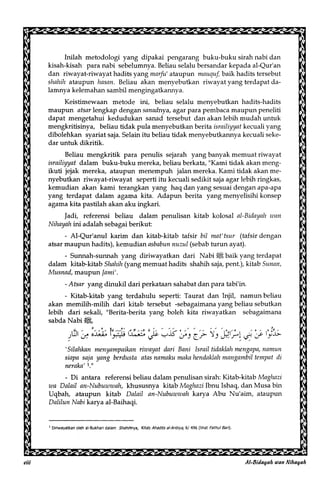 Inilah metodologi yang dipakai pengarang buku-buku sirah nabi dan
kisah-kisah para nabi sebelumnya. Beliau selalu bersandar kepada al-Qur'an
dan riwayat-riwayat hadits yang marfu' ataupun mauquf, baik hadits tersebut
shahih ataupun hasan. Beliau akan menyebutkan riwayat yang terdapat da-
lamnya kelemahan sambil mengingatkannya.
Keistimewaan metode ini, beliau selalu menyebutkan hadits-hadits
maupun atsar lengkap dengan sanadnya, agar para pembaca maupun peneliti
dapat mengetahui kedudukan sanad tersebut dan akan lebih mudah untuk
mengkritisinya, beliau tidak pula menyebutkan berita israiliyyat kecuali yang
dibolehkan syariat saja. Selain itu beliau tidak menyebutkannya kecuali seke-
dar untuk dikritik.
Beliau mengkritik para penulis sejarah yang banyak memuat riwayat
israiliyyat dalam buku-buku mereka, beliau berkata, "Kami tidak akan meng-
ikuti jejak mereka, ataupun menempuh jalan mereka. Kami tidak akan me-
nyebutkan riwayat-riwayat seperti itu kecuali sedikit saja agar lebih ringkas,
kemudian akan kami terangkan yang haq dan yang sesuai dengan apa-apa
yang terdapat dalam agama kita. Adapun berita yang menyelisihi konsep
agama kita pastilah akan aku ingkari.
Jadi, referensi beliau dalam penulisan kitab kolosal al-Bidayah wan
Nihayah ini adalah sebagai berikut:
- Al-Qur'anul karim dan kitab-kitab tafsir bil mat'tsur (tafsir dengan
atsar maupun hadits), kemudian asbabun nuzul (sebab turun ayat).
- Sunnah-sunnah yang diriwayatkan dari Nabi ﷺ baik yang terdapat
dalam kitab-kitab Shahih (yang memuat hadits shahih saja, pent.), kitab Sunan,
Musnad, maupun Jami'.
- Atsar yang dinukil dari perkataan sahabat dan para tabi'in.
- Kitab-kitab yang terdahulu seperti: Taurat dan Injil, namun beliau
akan memilih-milih dari kitab tersebut -sebagaimana yang beliau sebutkan
lebih dari sekali, "Berita-berita yang boleh kita riwayatkan sebagaimana
sabda Nabi ﷺ,
'Silahkan menyampaikan riwayat dari Bani Israil tidaklah mengapa, namun
siapa saja yang berdusta atas namaku maka hendaklah mengambil tempat di
neraka'
- Di antara referensi beliau dalam penulisan sirah: Kitab-kitab Maghazi
wa Dalail an-Nubuwwah, khususnya kitab Maghazi Ibnu Ishaq, dan Musa bin
Uqbah, ataupun kitab Dalail an-Nubuwwah karya Abu Nu'aim, ataupun
Dalilun Nabi karya al-Baihaqi.
viii
Al-Bidayah wan Nihayah